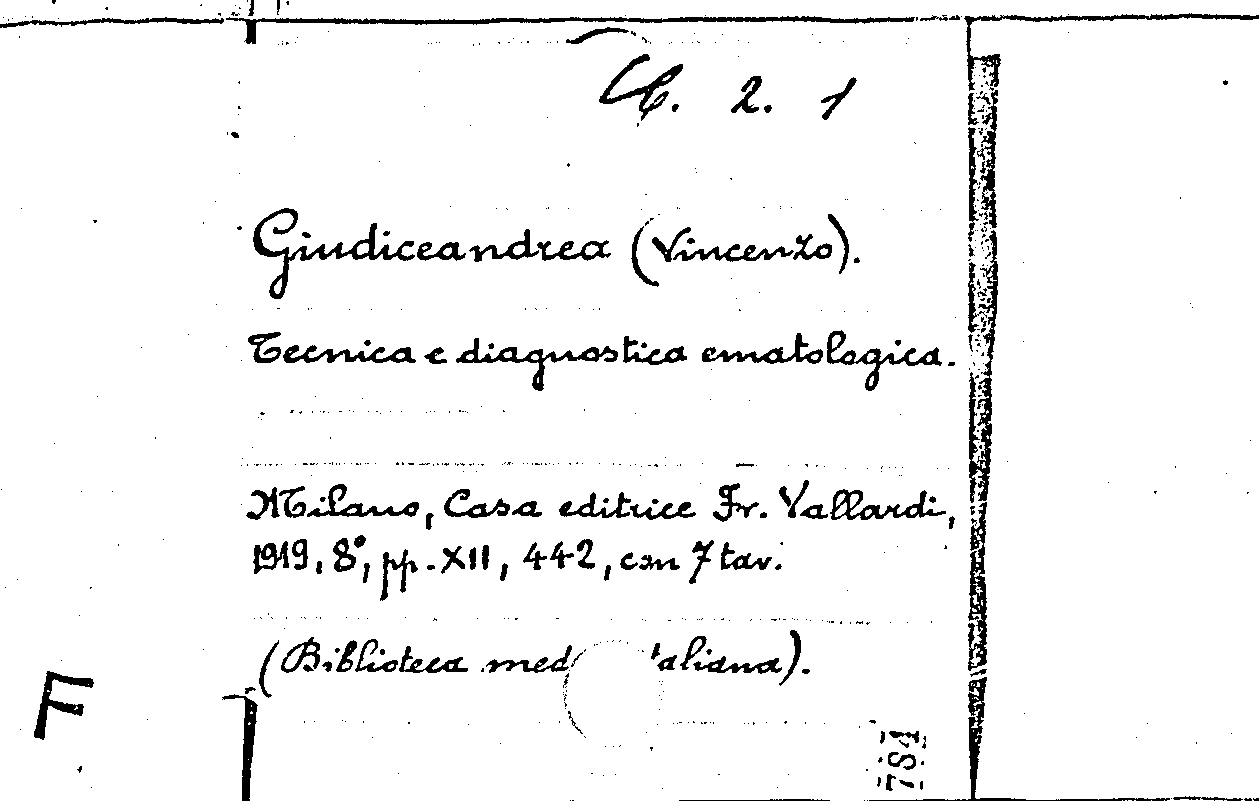 2. 1
Giudiceandrea (Vincenzo).
Tecnica e diagnostica ematologica.
Milano, Casa editrice Fr. Vallardi,
1919, 8°, pp. XII, 442, con 7 tav.
(Biblioteca med aliana).
F
784